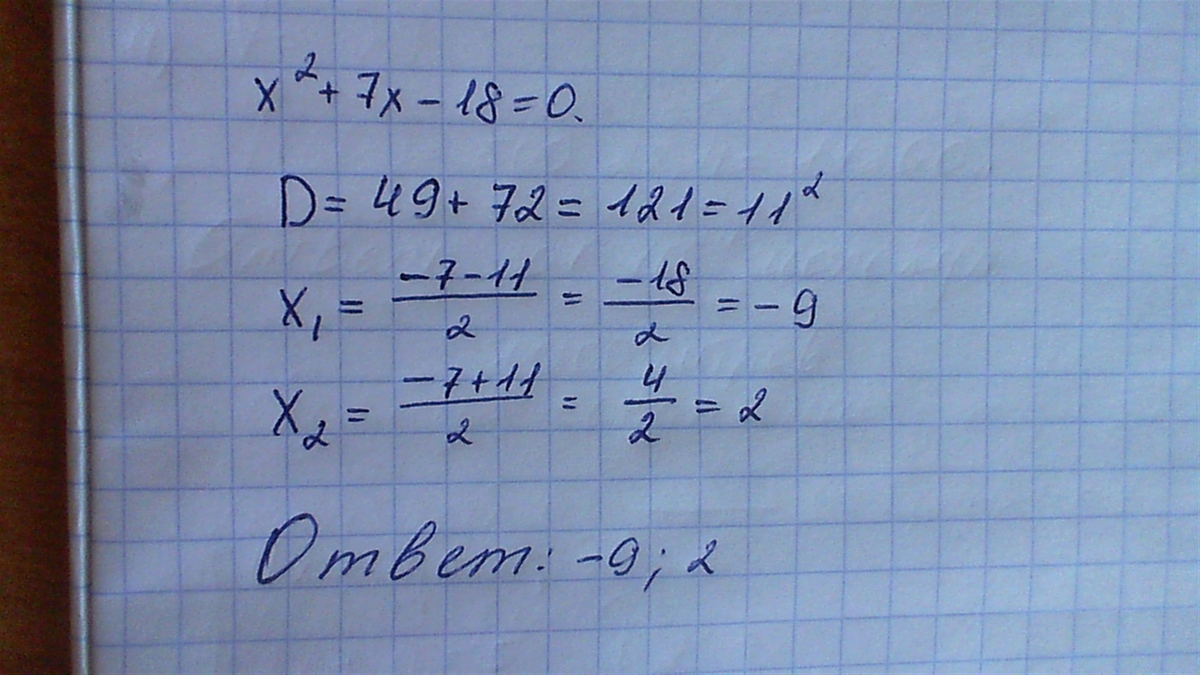 x² + 7x - 18 = 0.
D = 49 + 72 = 121 = 11²
x₁ = (-7-11)/2 = -18/2 = -9
x₂ = (-7+11)/2 = 4/2 = 2
Ответ: -9; 2